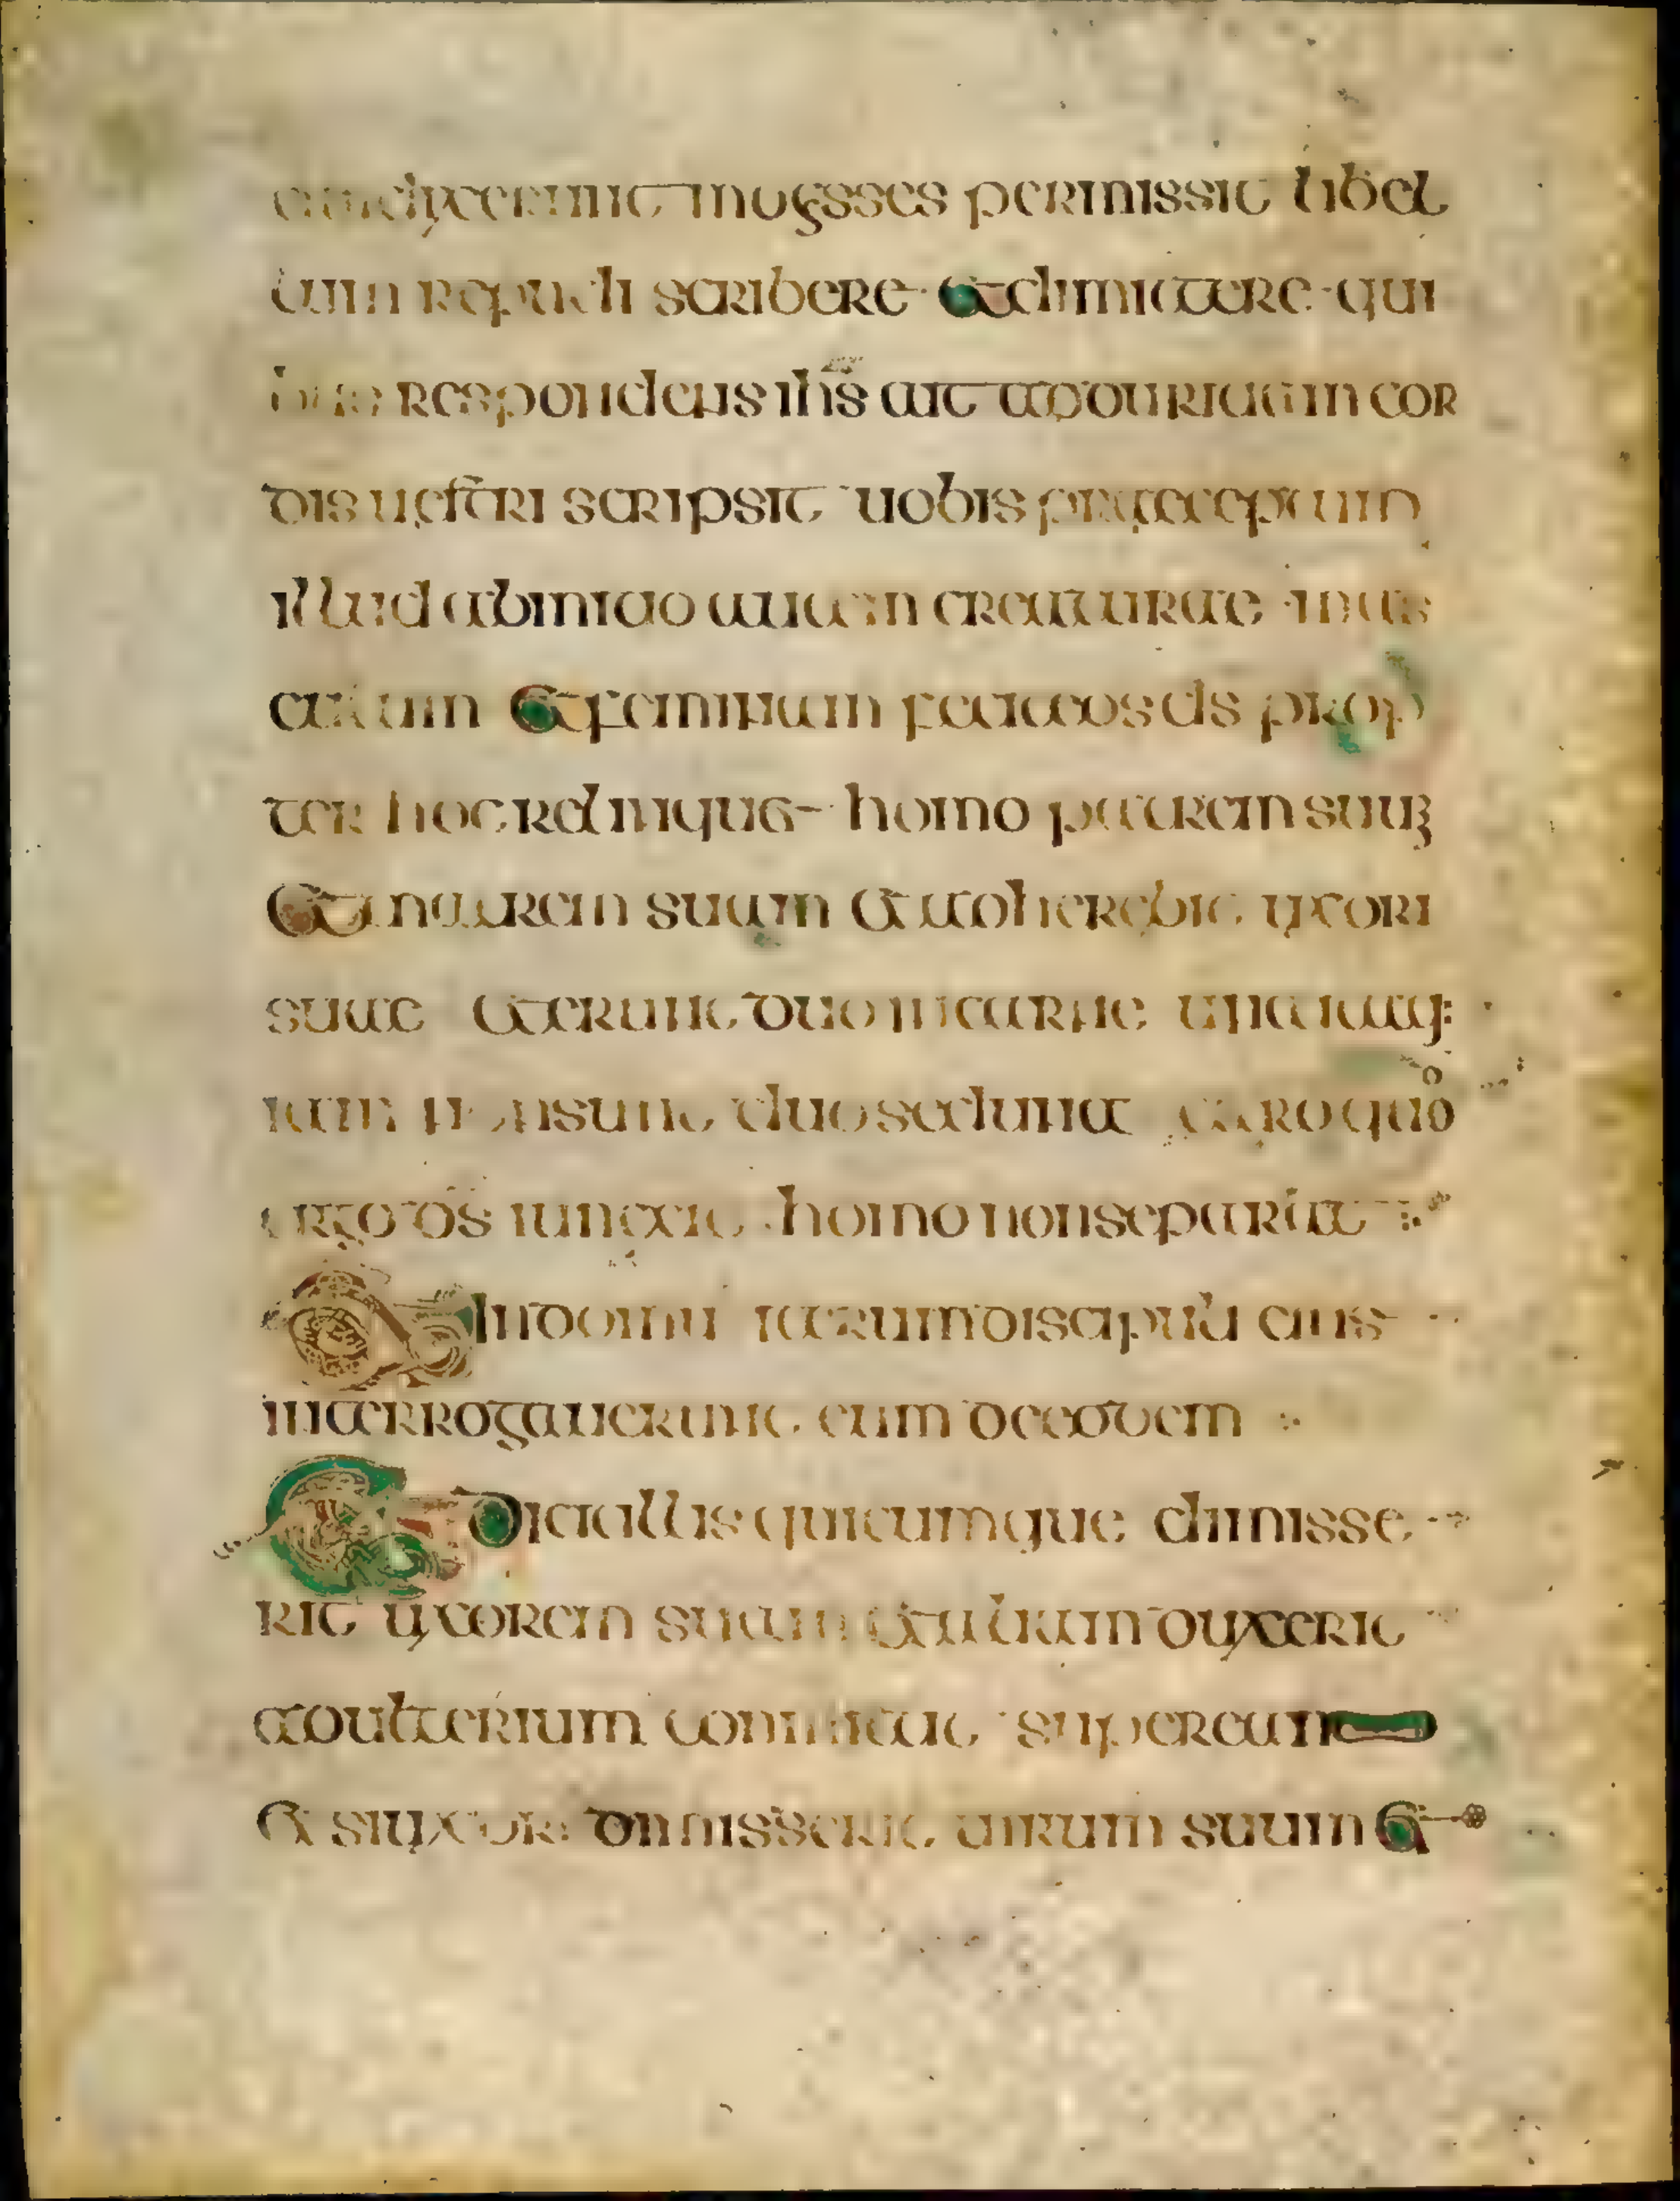 qui dixerunt moysses permissit libel
lum repudi scribere et dimittere qui
bus respondens ihs ait ad duritiam cor
dis uestri scripsit uobis praeceptum
illud ab initio autem creaturae mas
culum et feminam fecit eos ds prop
ter hoc relinquet homo patrem suum
et matrem suam et adherebit uxori
suae et erunt duo in carne una itaq:
iam non sunt duo sed una caro quod
ergo ds iunxit homo non separat
Et in domu iterum discipuli eius
interrogauerunt eum de eodem
Et dicit illis quicumque dimisse
rit uxorem suam et aliam duxerit
adulterium committit super eam
et si uxor dimisserit uirum suum et